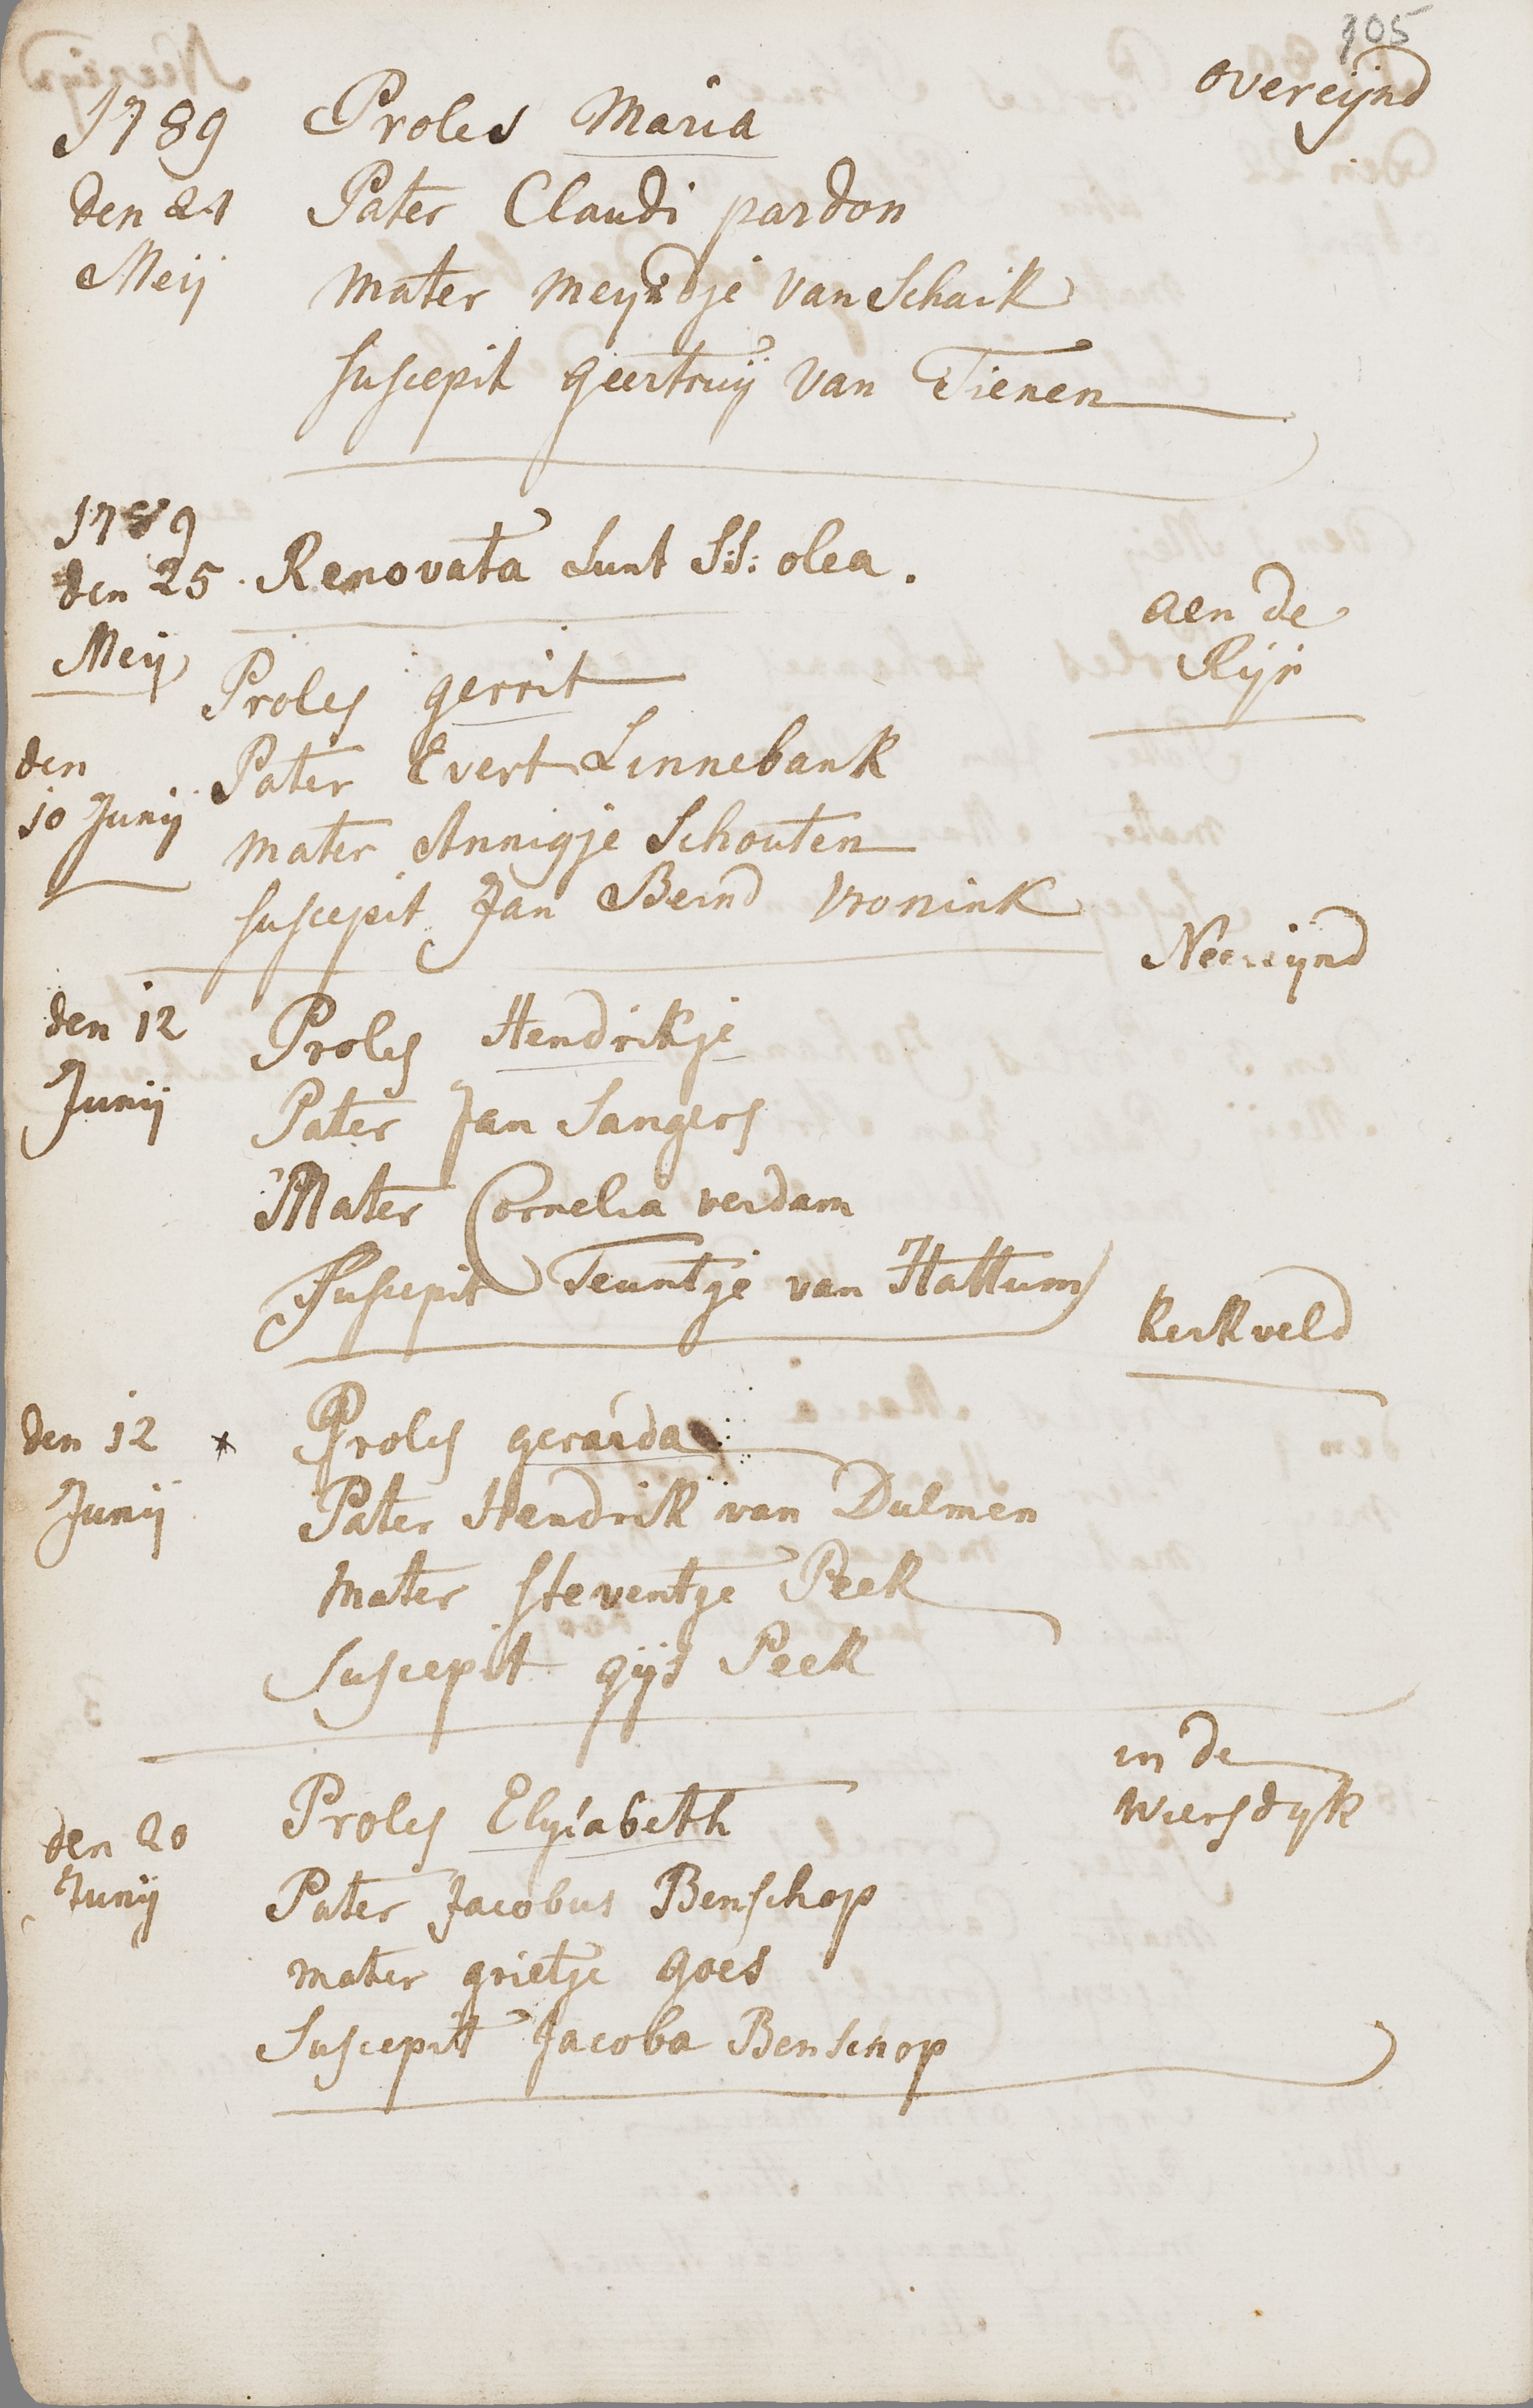 105
overeijnd
1789 Proles Maria
den 21 Pater Claudi pardon
Meij mater meyndje van Schaik
suscepit geertruij van Tienen
1789
den 25 Renovata sunt S:S: olea.
Meij
aen de
Rijn
Proles gerrit
den Pater Evert Linnebank
10 Junij mater Annigje Schouten
suscepit Jan Bernd Vronink
Neereijnd
den 12 Proles Hendrikje
Junij Pater Jan Sangers
Mater Cornelia verdam
Suscepit Teuntje van Hattum
kerkveld
den 12 * Proles gerarda
Junij Pater Hendrik van Dulmen
mater steventje Peek
Suscepit gijs Peek
in de
wiersdyk
den 20 Proles Elysabeth
Junij Pater Jacobus Benschop
mater grietje goes
Suscepit Jacoba Benschop